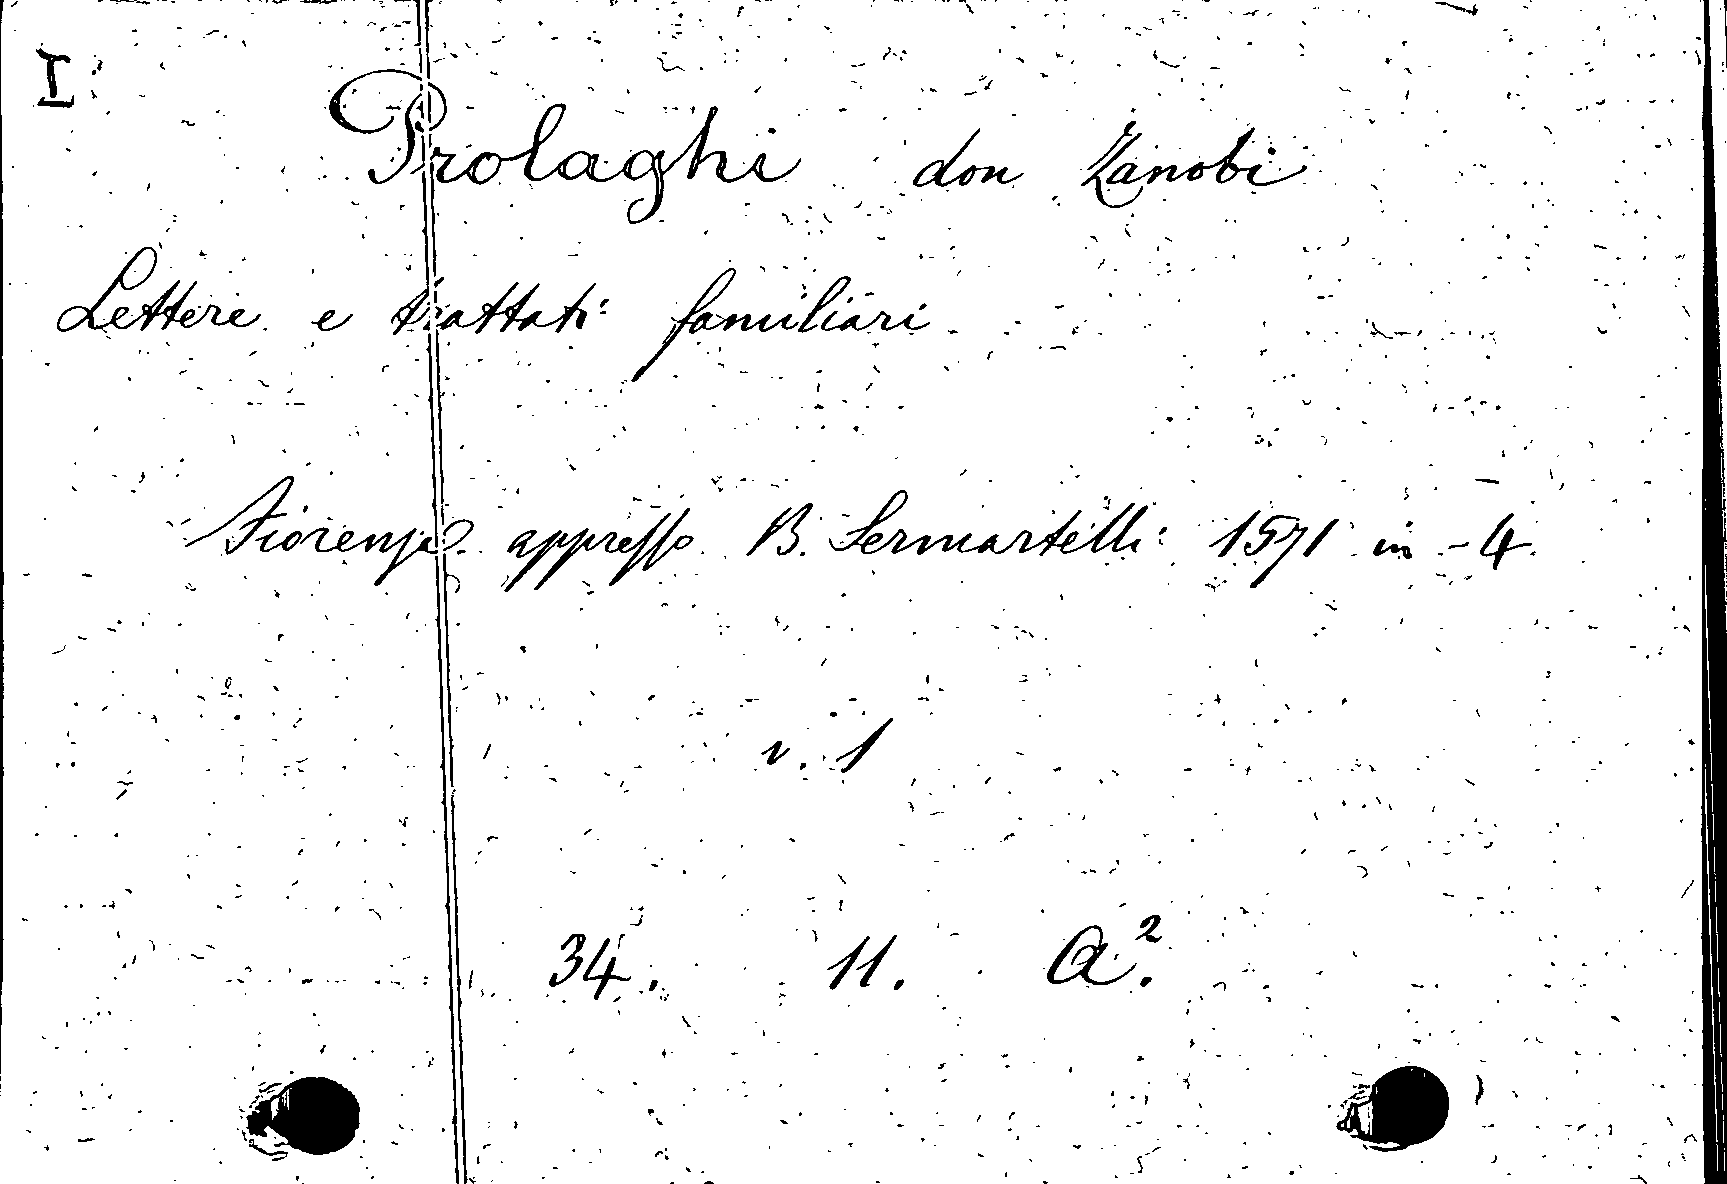 I
Prolaghi don Zanobi
Lettere e trattati familiari
Fiorenza appresso B. Sermartelli 1571 in -4.
v. 1
34. 11. A².